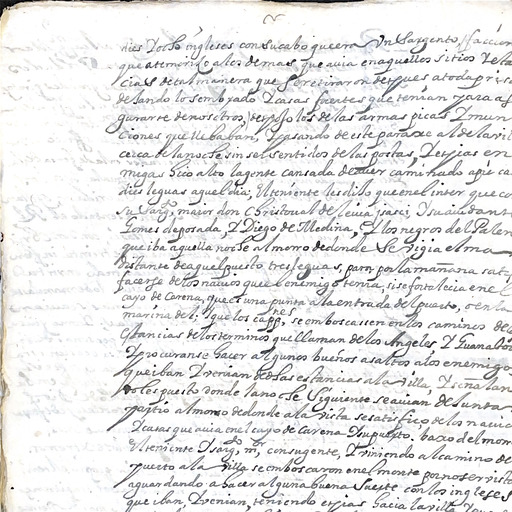 dies Yocho ingleses con su cabo que era Un Sargento, faccion
que atemorizo a los demas, que auia en aquellos sitios Y esta
cias de tal manera que se retiraron despues a toda prisa
dejando lo sembrado Y casas fuertes que tenian para a
gurarse de nosotros, despojolos de las armas picas Y mun
ciones que llebaban, Y pasando de este paraxe al de la vill
cerca de la noche sin ser sentidos de las postas, Y espias en
migas hiço alto la gente cansada de auer caminado a pie ca
dies leguas aquel dia; El teniente les dijo que en el inter que co
su sargto maior don Christoual de leiua isasi, Y su aiudante
Gomes de posada, Y Diego de Medina, Y los negros del Palen
que iba aquella noche al morro de donde se vigia el mar
distante de aquel puesto tres leguas, para por la mañana sati
facerse de los nauios que el enemigo tenia, si se fortalecia en el
cayo de Carena, que es una punta a la entrada del puerto, o en la
marina del, Y que los cappnes se emboscassen en los caminos de
estancias de los terminos que llaman de los Angeles Y Guana
Y procuranse hacer algunos buenos asaltos a los enemigos
que iban Y venian de dhas estancias a la villa, Y señalan
doles puesto donde la noche siguiente se auian de juntar
partio al morro de donde a la vista se satisfiço de los nauios
Y casas que auia en el cayo de Carena Y su puerto, baxo del mor
El teniente Y sargto mor, con su gente, Y viniendo al camino de
puerto a la villa se emboscaron en el monte por no ser visto
aguardando a hacer alguna buena suerte con los ingleses
que iban, Y venian, teniendo espias hacia la villa